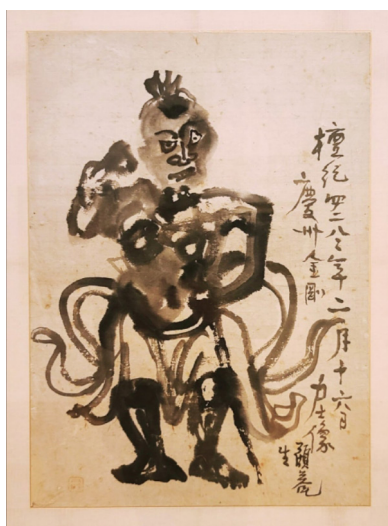 檀紀四二八三年二月十六日
慶州金剛力士像
顧菴生